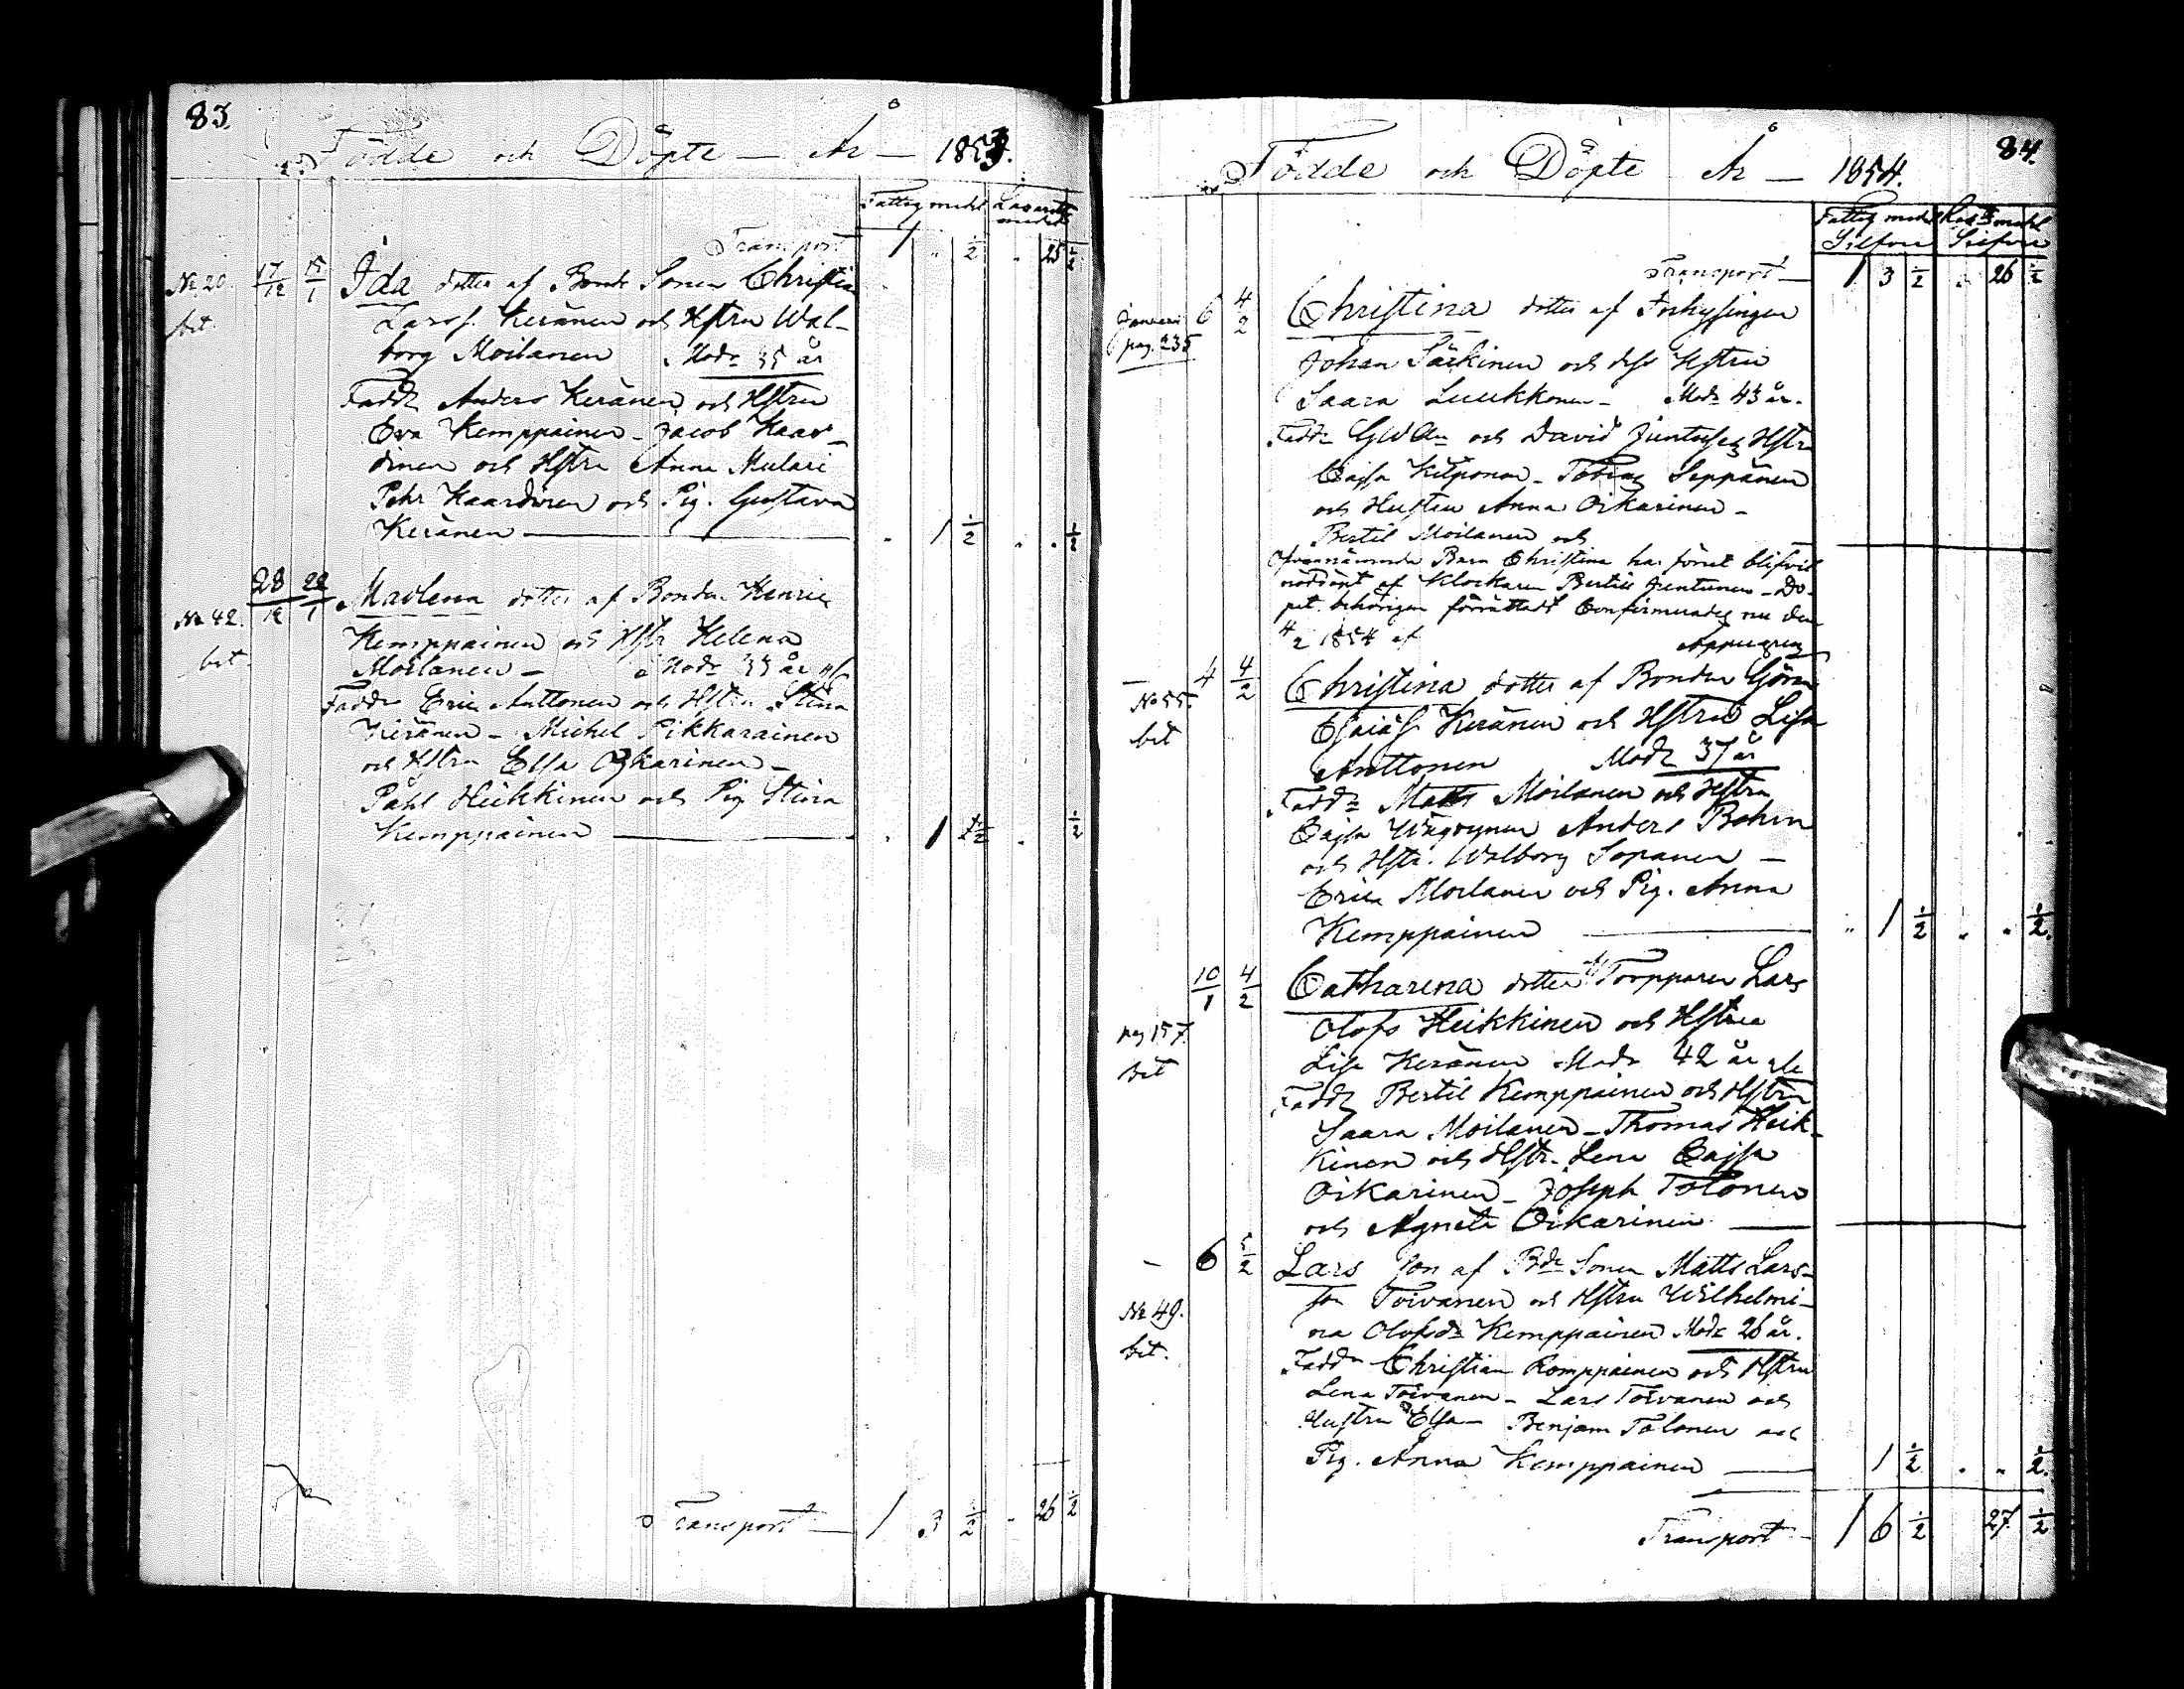 83.
Födde och Döpte — År — 1853.
Fattig medel Lazaretts medel
Transport 1 " 1/2 " 25 1/2
No 20. 17/12 15/1 Ida dotter af Bonde Sonen Christian
bet. Larss. Keränen och Hstru Wal-
borg Moilanen Modr 35 år
Faddr Anders Keränen och Hstru
Eva Kemppainen - Jacob Kaar-
dinen och Hstru Anna Mulari
Pehr Kaardinen och Pig. Gustava
Keränen — " 1 1/2 " " 1/2
28/12 22/1 Madlena dotter af Bonden Henric
No 42. Kemppainen och Hstr Helena
bet. Moilanen — Modr 33 år
Faddr Eric Anttonen och Hstru Stina
Keränen - Michel Pikkarainen
och Hstru Elsa Oikarinen -
Påhl Heikkinen och Pig Stina
Kemppainen — " 1 1/2 " 1/2
Transport — 1 3 1/2 " 26 1/2
84.
Födde och Döpte År — 1854.
Fattig medel Laz. medel
Silfver Silfver
Transport — 1 3 1/2 " 26 1/2
Januari 6 4/2 Christina dotter af Inhysingen
pag. 235 Johan Särkinen och dess Hstru
Saara Luukkonen - Modr 43 år.
Faddr och David Juntusey Hstr
Cajsa Kilponen - Tobias Seppänen
och Hustru Anna Oikarinen -
Bertil Moilanen och
Ofvannämnda Barn Christina har förut blifvit
nöddöpt af Klockaren Bertill Juntunen - Do-
pet behörigen förrättadt Confirmerades nu den
4/2 1854 af
4 4/2 Christina dotter af Bonden Göran
No 55. Esaiass. Keränen och Hstru Lisa
bet Anttonen Modr 37 år
Faddr Matts Moilanen och Hstru
Cajsa Anders Bohm
och Hstr. Walborg Sopanen —
Eric Moilanen och Pig. Anna
Kemppainen — " 1 1/2 " " 1/2.
10/1 4/2 Catharina dotter af Torpparen Lars
pag 157. Olofs Heikkinen och Hstrun
bet Lisa Keränen Modr 42 år
Faddr Bertil Kemppainen och Hstru
Saara Moilanen - Thomas Heik-
kinen och Hstr. Lena Cajsa
Oikarinen - Joseph Tolonen
och Agneta Oikarinen —
6 5/2 Lars Son af Bde Sonen Matts Lars-
No 49. son Toivanen och Hstru Wilhelmi-
bet. na Olofsdr Kemppainen Modr 26 år.
Faddr Christian Komppainen och Hstru
Lena Toivanen - Lars Toivanen och
Hustru Elsa - Benjam Tolonen och
Pig. Anna Kemppainen — 1 1/2 " " 1/2.
Transport — 1 6 1/2 27 1/2